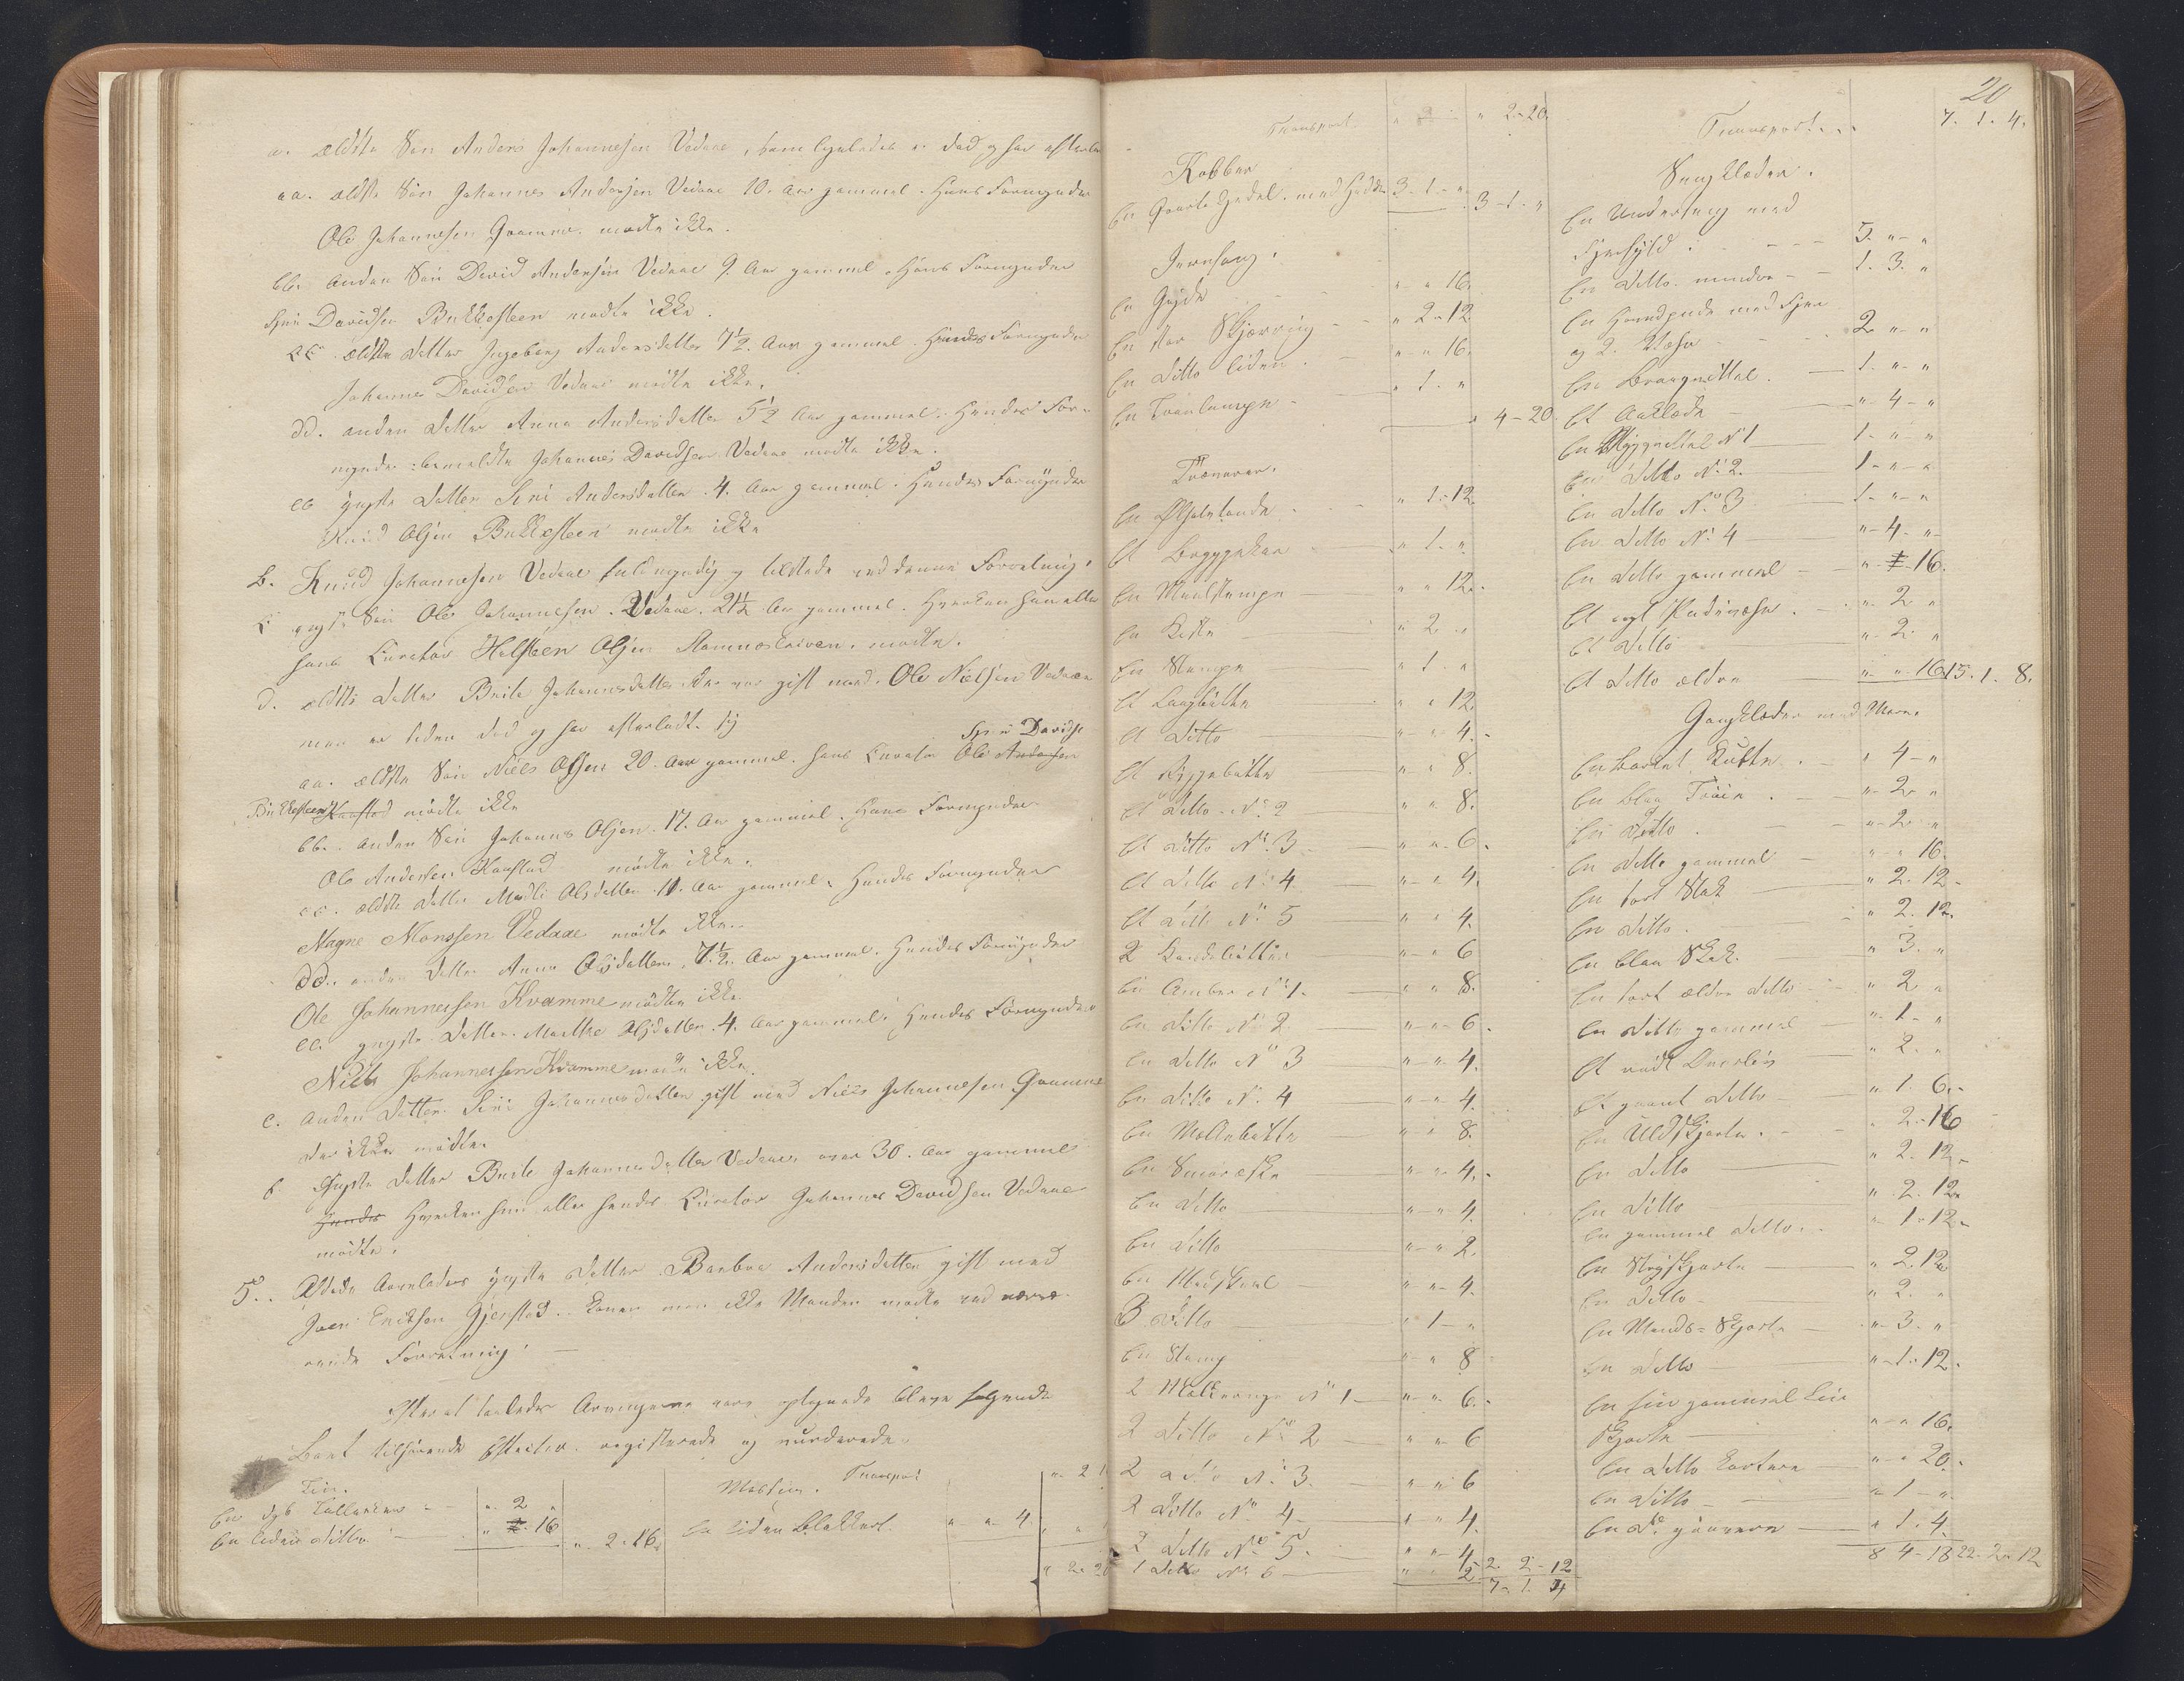 a. ældste Søn Anders Johannesen Vedaae, som ligeledes er død og har efterla
aa. ældste Søn Johannes Andersen Vedaae 10. Aar gammel. Hans Formynder
Ole Johannesen Qvamme mødte ikke.
bb. anden Søn David Andersen Vedaae 9 Aar gammel. Hans Formynder
Davidsen Bukkesteen mødte ikke.
cc. ældste Datter Ingeborg Andersdatter 7½. Aar gammel. Hendes Formynder
Johannes Davidsen Vedaae mødte ikke.
dd. anden Datter Anna Andersdatter 5½ Aar gammel. Hendes For-
mynder bemeldte Johannes Davidsen Vedaae mødte ikke.
ee yngste Datter Siri Andersdatter 4. Aar gammel. Hendes Formynder
Knud Olsen Bukkesteen mødte ikke
b. Knud Johannesen Vedaae fuldmyndig og tilstede ved denne Forretning.
c yngste Søn Ole Johannesen Vedaae 21½ Aar gammel. Hverken han eller
hans Curator Helsteen Olsen mødte.
d. ældste Datter Brite Johannesdatter der var gift med Ole Nielsen Vedaae
men er siden død og har efterladt sig
aa. ældste Søn Niels Olsen 20. Aar gammel. hans Curator Ole Andersen
Davids
Bukkesteen Haastad mødte ikke
bb. anden Søn Johannes Olsen 17. Aar gammel. Hans Formynder
Ole Andersen Haastad mødte ikke.
cc. ældste Datter Madli Olsdatter 11. Aar gammel. Hendes Formynder
Magne Monssen Vedaae mødte ikke.
dd. anden Datter Anna Olsdatter 7½ Aar gammel. Hendes Formynder
Ole Johannessen Kvamme mødte ikke
ee. yngste Datter Marthe Olsdatter 4. Aar gammel. Hendes Formynder
Niels Johannessen Kvamme mødte ikke.
e. anden Datter Siri Johannesdatter gift med Niels Johannesen Qvamme
der ikke mødte.
f. Yngste Datter Brite Johannesdatter Vedaae, over 30. Aar gammel
Hendes Hverken hun eller hendes Curator Johannes Davidsen Vedaae
mødte.
5.. Afdøde Arveladers yngste Datter Barbra Andersdatter gift med
Erikson Gjerstad. Konen men ikke Manden mødte ved nærvæ-
rende Forretning. —
Efterat saaledes Arvingerne vare optegnede bleve følgende
Boet tilhørende Effecter registrerede og vurderede.
Tin.
En dyb Tallerken " 2 "
En liden Ditto " " 16 " 2-16.
Transport " 2 1
Messing.
En liden Blekkert. " " 4.
" 2-20
20
Transport " 2-20.
Kobber
En Gryde med Hadde 3-1-" 3-1-"
Jernfang.
En Gryde " " 16.
En stor Skjæring " 2-12
En Ditto liden " " 16.
En Tranlampe " 1. "
" 4-20
Trævarer.
En Øltønde " 1-12
Et Bryggekar " 1 "
En Maalstampe " " 12.
En Kiste " 2 "
En Stampe " 1. "
Et Laagbøtte " " 12.
Et Ditto " " 4.
Et Ringebøtte " " 8.
Et Ditto No 2 " " 8.
Et Ditto No 3 " " 6.
Et Ditto No 4 " " 4.
Et Ditto No 5 " " 4.
2 Vandbøtter " " 6
En Amber No 1. " " 8.
En Ditto No 2 " " 6.
En Ditto No 3 " " 4.
En Ditto No 4 " " 4.
En Mælkebøtte " " 8.
En Smøræske " " 4.
En Ditto " " 4.
En Ditto " " 2.
En " " 4.
3 Ditto " 1 "
En Stamp " " 8
2 Melkeringe No 1 " " 6.
2 Ditto No 2 " " 6
2 Ditto No 3. " " 6
2 Ditto No 4 " " 4.
2 Ditto No 5. " " 4
1 Ditto No 6 " " 2 2. 2-12
7. 1. 4
Transport.. 7. 1. 4.
Sengklæder.
En Underseng med
Fjerfyld 5. " "
En Ditto mindre 1. 3. "
En Hovedpude med Fjær
og 2. 2 " "
En 1. " "
Et Aaklæde " 4 "
En No 1 1. " "
En Ditto No 2. 1. " "
En Ditto No 3 1. " "
En Ditto No 4 " 4. "
En Ditto gammel " " 16.
Et nyt " 2 "
Et Ditto " 2. "
Et Ditto ældre " " 16. 15. 1. 8.
Gangklæder med Mere.
En Kufte " 4 "
En blaa Trøie " 2. "
En Ditto " 2. "
En Ditto gammel " " 16.
En sort Stak " 2. 12
En Ditto " 2. 12.
En blaa Stak. " 3. "
En sort ældre Ditto " 2 "
En Ditto gammel " 1 "
Et rødt " 2. "
Et grønt Ditto " 1. 6.
En Uldskjorte " 2-16
En Ditto " 2. 12
En Ditto " 2. 12.
En gammel Ditto " 1-12
En Skjorte " 2. 12
En Ditto " 2. "
En Mands-Skjorte " 3. "
En Ditto " 1. 12.
En gammel
Skjorte " " 16.
En Ditto kortere " " 20.
En Ditto " 1 "
En Do grovere " 1. 4.
8 4-13 22. 2. 12